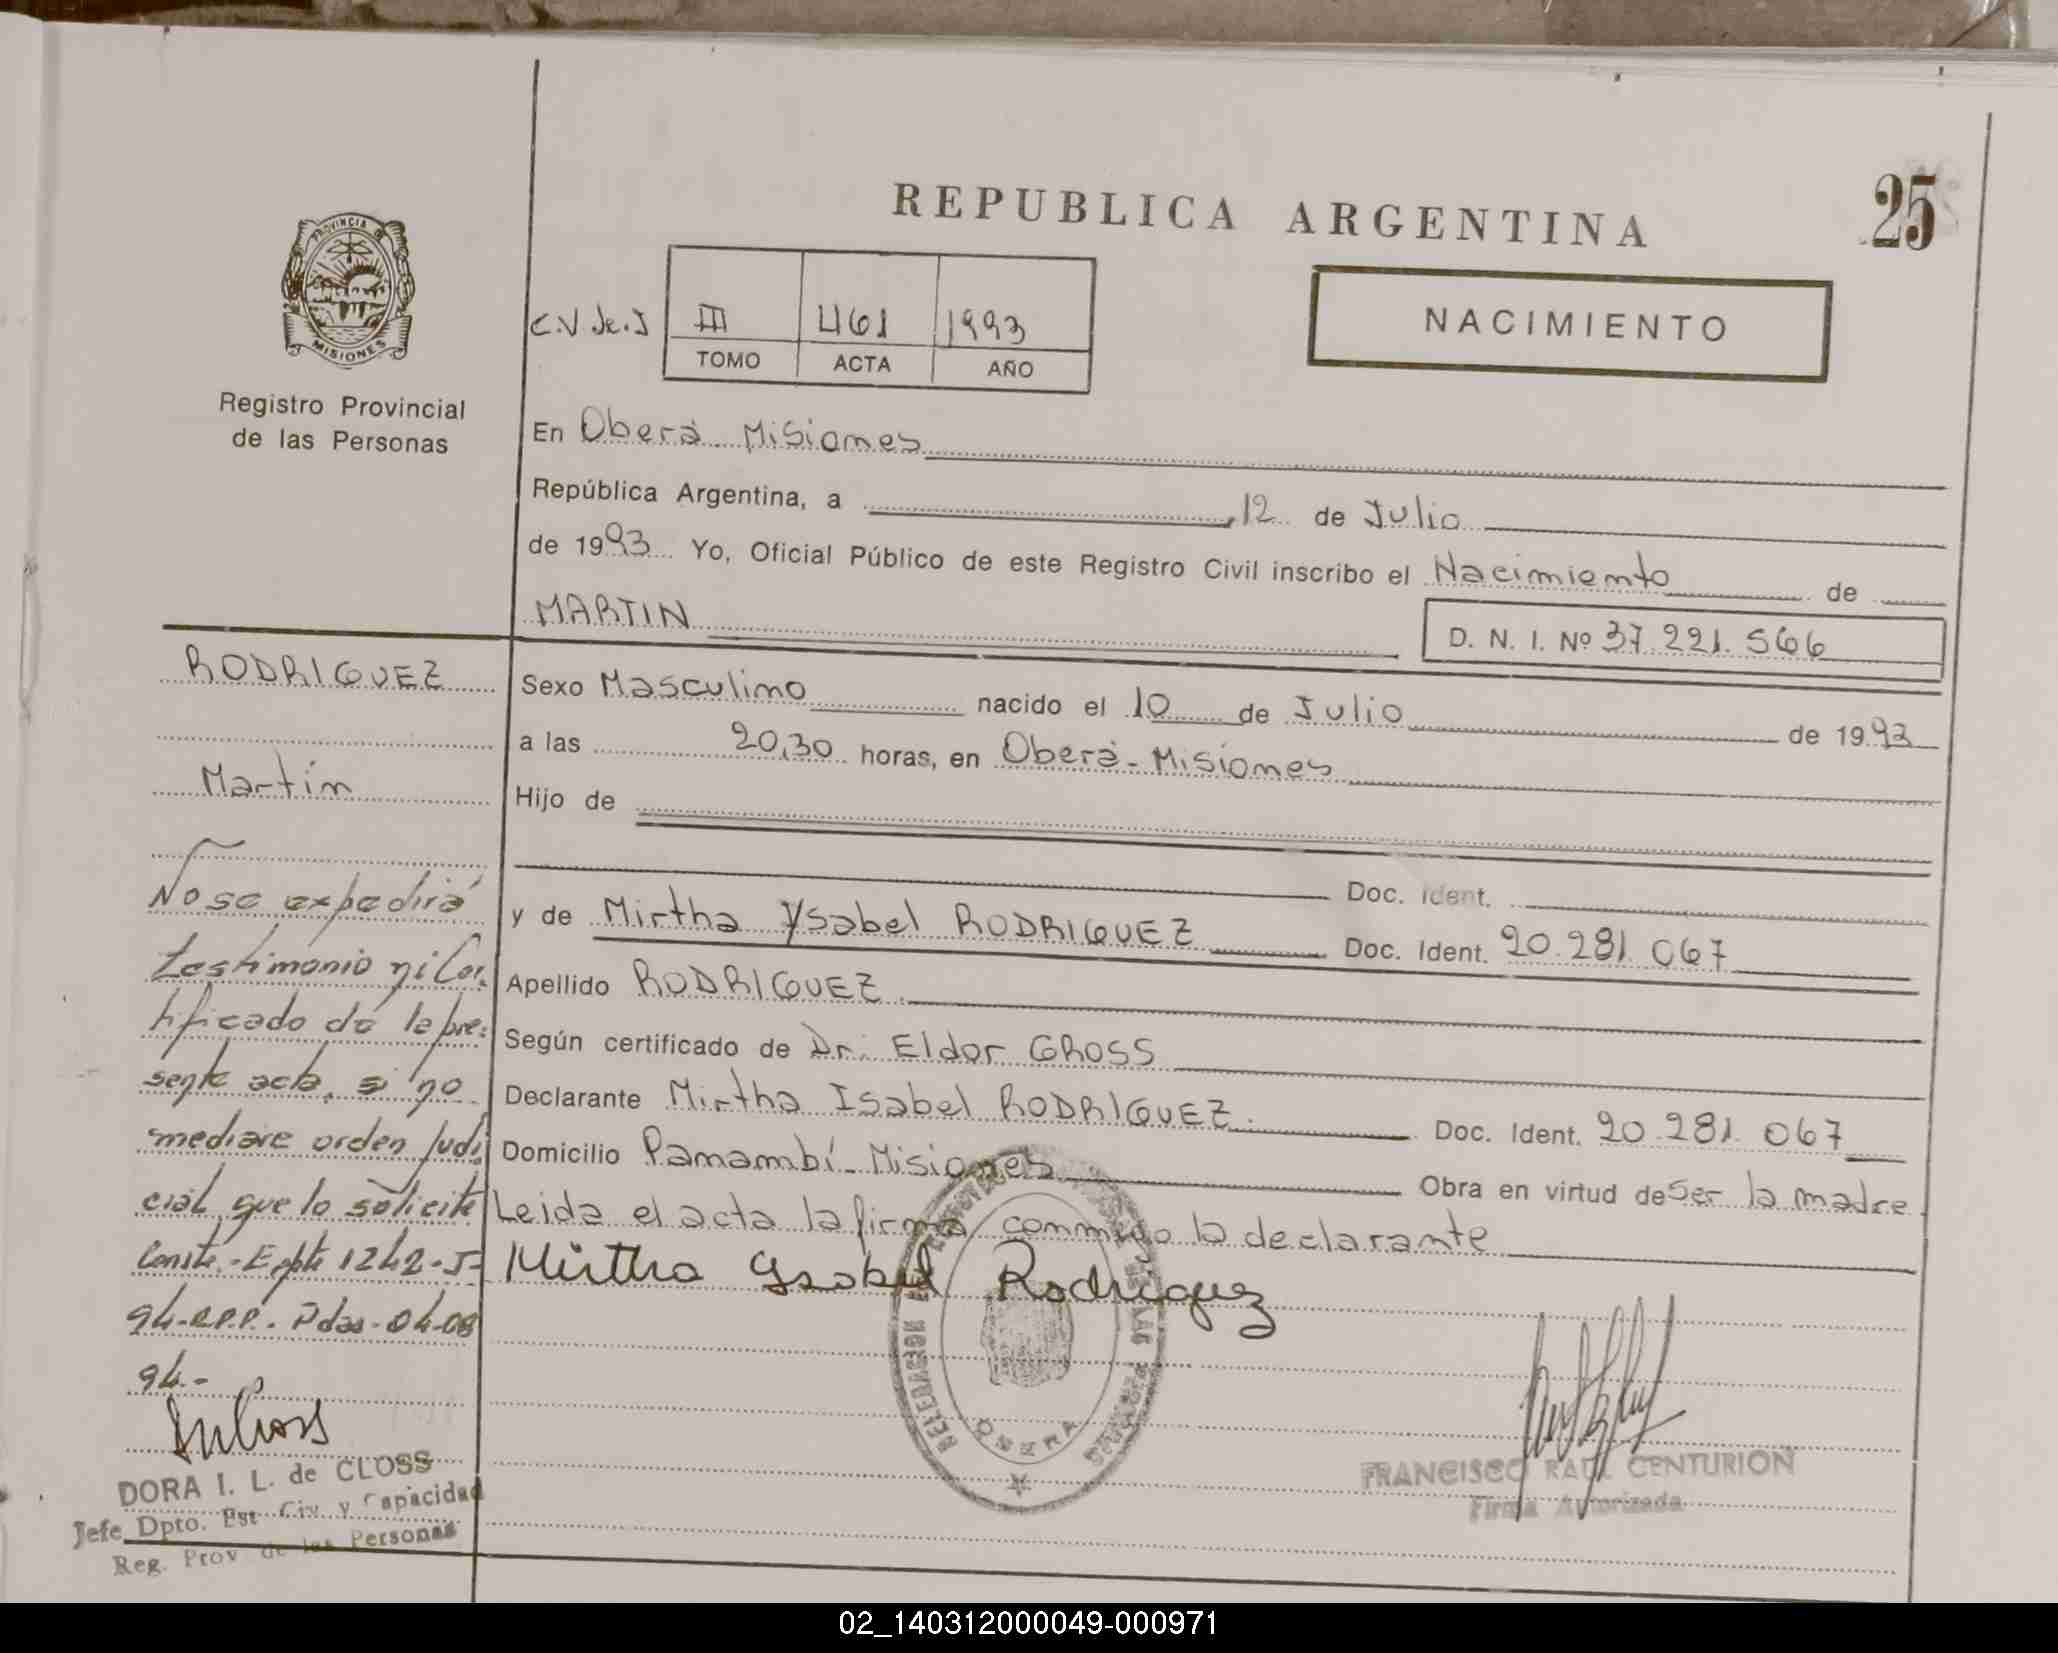 REPUBLICA ARGENTINA
25
PROVINCIA DE
MISIONES
Registro Provincial
de las Personas
C.V Je.J
III 461 1993
TOMO ACTA AÑO
NACIMIENTO
En Oberá Misiones
República Argentina, a 12 de Julio
de 1993 Yo, Oficial Público de este Registro Civil inscribo el Nacimiento de
MARTIN
D. N. I. Nº 37.221.566
Sexo Masculino nacido el 10 de Julio de 1993
a las 20,30 horas, en Oberá - Misiones
Hijo de
Doc. Ident.
y de Mirtha Ysabel RODRIGUEZ Doc. Ident. 20.281.067
Apellido RODRIGUEZ
Según certificado de Dr. Eldor GROSS
Declarante Mirtha Isabel RODRIGUEZ. Doc. Ident. 20.281.067
Domicilio Panambí - Misiones Obra en virtud de Ser la madre
Leida el acta la firma conmigo la declarante
Mirtha Ysabel Rodriguez
RODRIGUEZ
Martín
No se expedirá
testimonio ni Cer.
tificado de la pre:
sente acta, si no
mediare orden Judi
cial que lo solicite
Conste.- Expte 1242-J-
94-R.P.P. - Pdas - 04-08
94.-
DORA I. L. de CLOSS
Jefe Dpto. Est Civ. y Capacidad
Reg. Prov de las Personas
OBERA
FRANCISCO RAUL CENTURION
Firma Autorizada
02_140312000049-000971